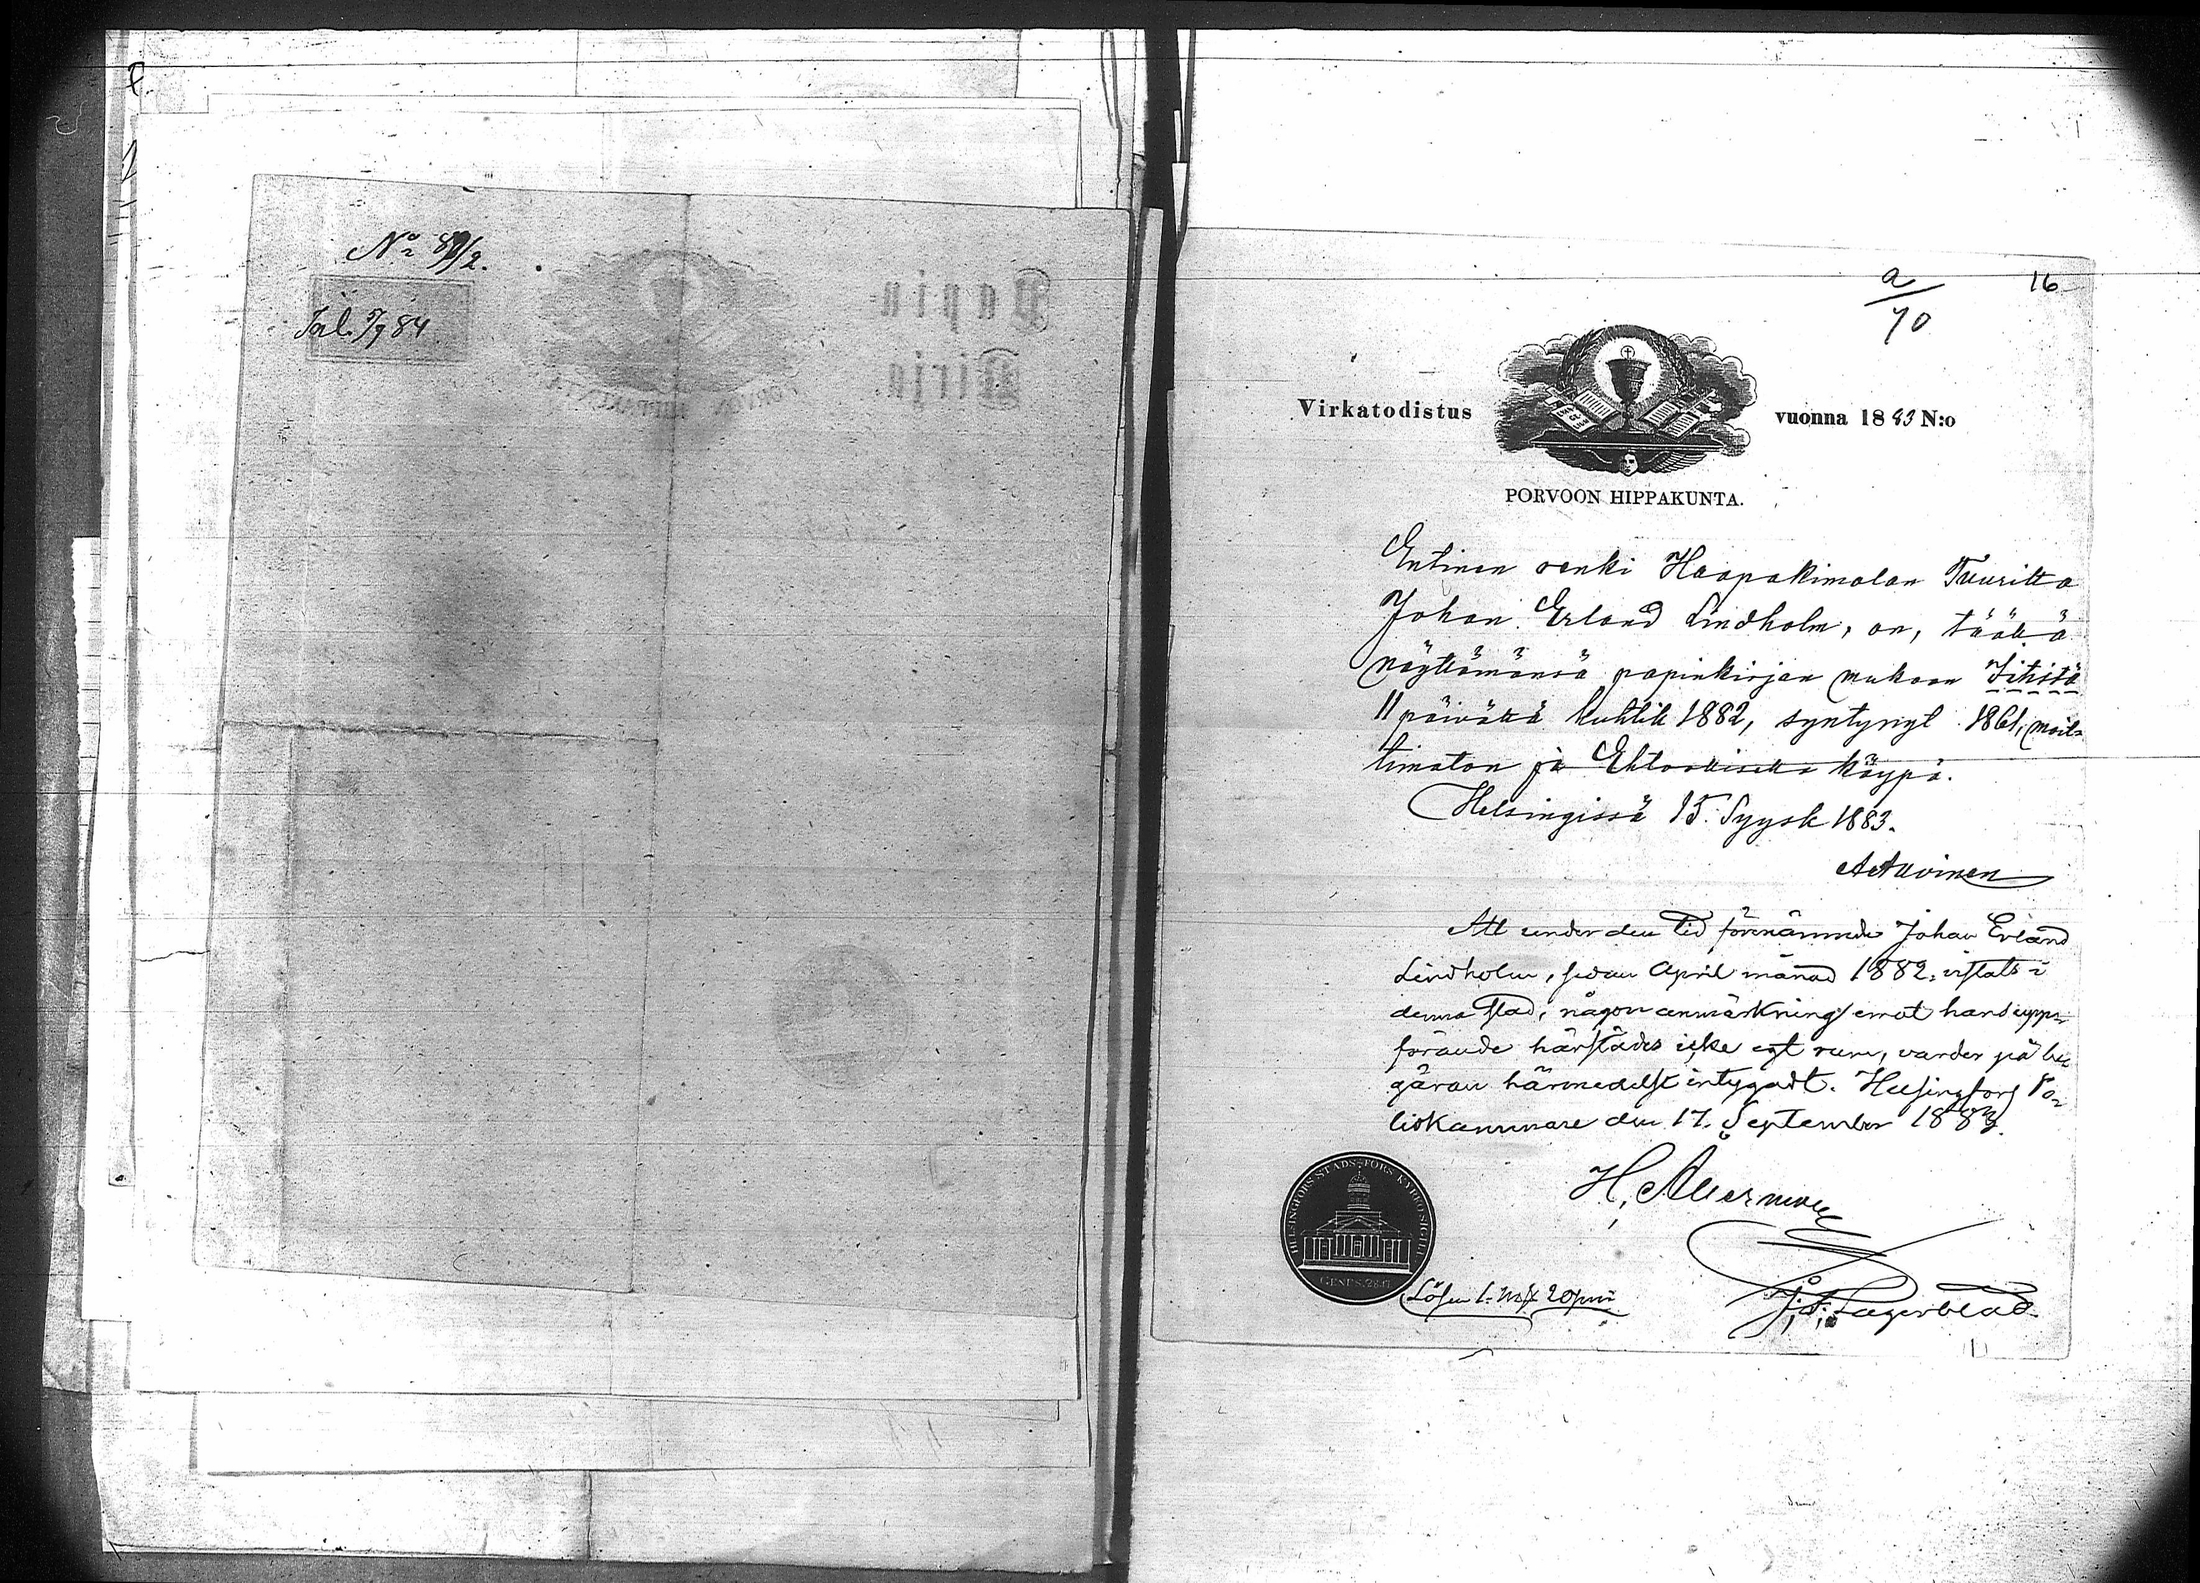 No 89/2.
Jal. 5/9 84
Papin
Kirja.
PORVOON HIPPAKUNTA
a/70
16
Virkatodistus vuonna 1883 N:o
PORVOON HIPPAKUNTA.
Entinen renki Haapakimolan Tuurilta
Johan Erland Lindholm, on, täällä
näyttämänsä papinkirjan mukaan Iitistä
11 päivältä huhtik 1882, syntynyt 1861, moit-
timaton ja Ehtoolliselle käypä.
Helsingissä 15. Syysk 1883.
Att under den tid förenämnde Johan Erland
Lindholm, sedan April månad 1882 vistats i
denna stad, någon anmärkning emot hans upp-
förande härstädes icke egt rum, varder på be-
gäran härmedelst intygadt. Helsingfors Po-
liskammare den 17. September 1883.
H, Åkerman
Lagerblad.
HELSINGFORS STADS-FÖRS. KYRKO SIGILL
GENES. 28.17.
Lösen 1. mk 20 pni